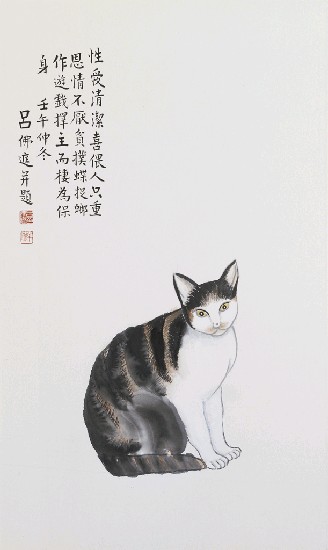 性爱清潔喜偎人只重
恩情不厭貧撲蝶捉螂
作遊戲擇主而棲為保
身
壬午仲冬
呂佛庭并題